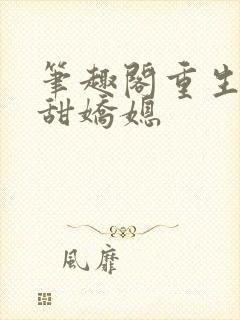 筆趣閣重生
甜嬌媳
風靡